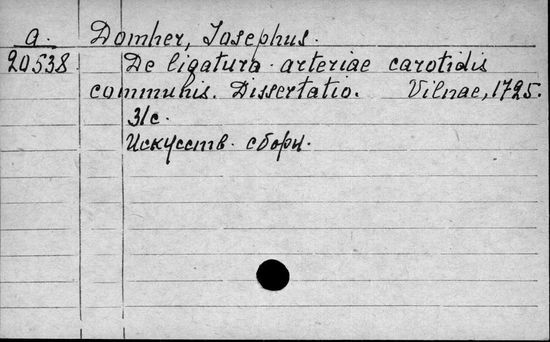 a. Domher, Iosephus.
20538. De ligatura arteriae carotidis
communis. Dissertatio. Vilnae, 1725.
31с.
Искусств. сборн.